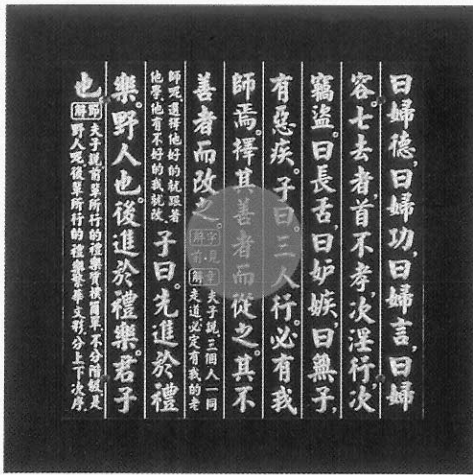 曰婦德,曰婦功,曰婦言,曰婦
容。七去者首不孝,次淫行,次
竊盜。曰長舌,曰妒嫉,曰無子,
有惡疾。子曰。三人行。必有我
師焉。擇其善者而從之。其不
善者而改之。字解見前章 解 夫子說,三個人一同走道必定有我的老
師呢,選擇他好的就跟著他學,他有不好的我就改。子曰。先進於禮
樂。野人也。後進於禮樂。君子
也 節解 夫子說,前輩所行的禮樂質樸簡單,不分階級,是野人呢,後輩所行的禮樂繁華文彩,分上下次序,